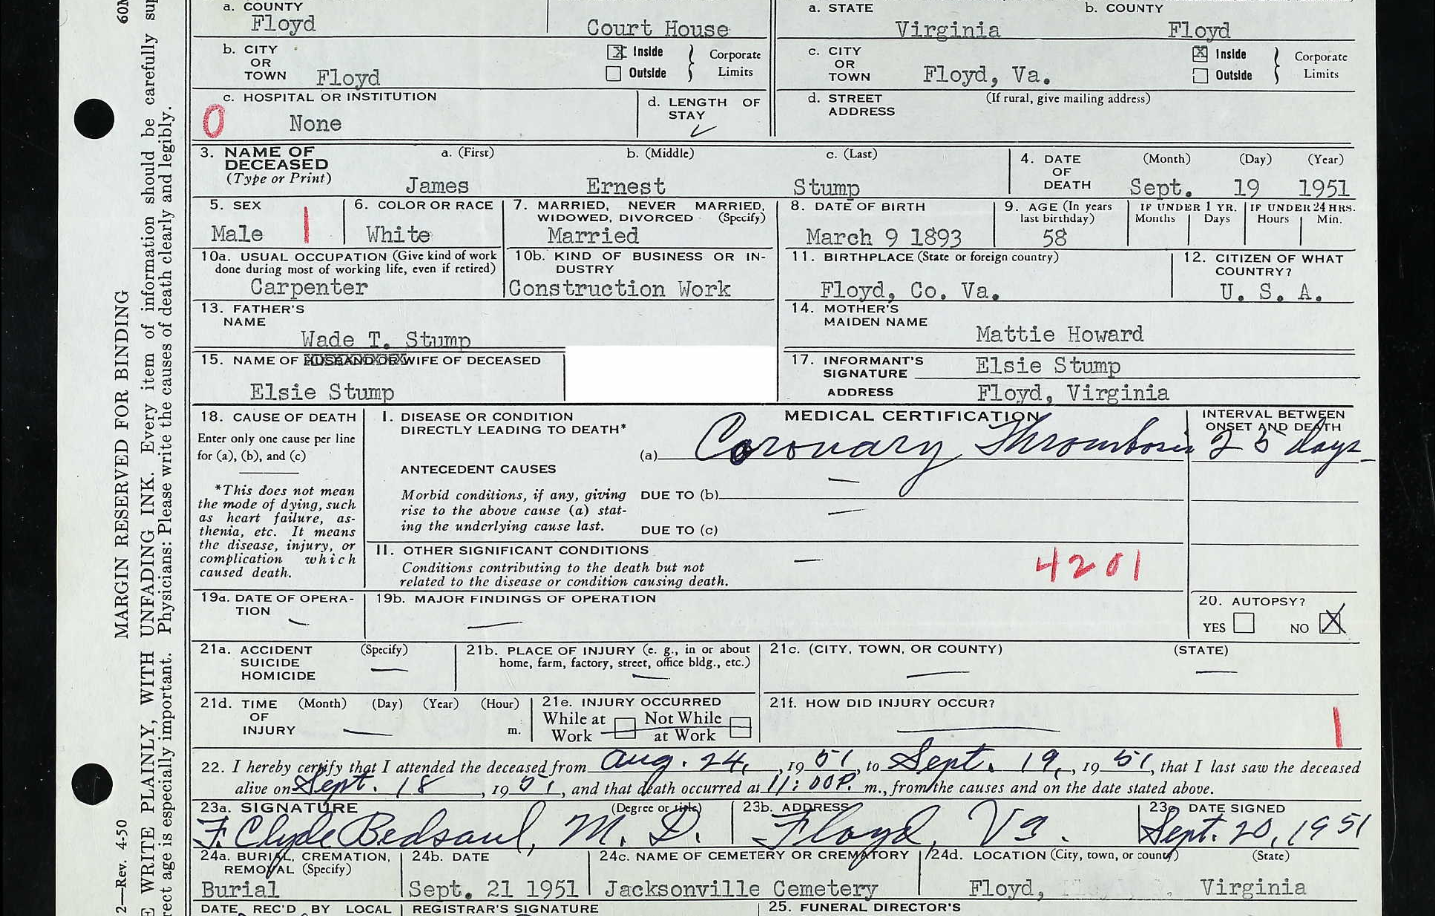 a. COUNTY
Floyd
Court House
a. STATE
Virginia
b. COUNTY
Floyd
b. CITY OR TOWN Floyd
Inside
Outside
Corporate Limits
c. CITY OR TOWN Floyd, Va.
Inside
Outside
Corporate Limits
c. HOSPITAL OR INSTITUTION
0
None
d. LENGTH OF STAY
d. STREET ADDRESS (If rural, give mailing address)
3. NAME OF DECEASED (Type or Print)
a. (First) b. (Middle) c. (Last)
James Ernest Stump
4. DATE OF DEATH (Month) (Day) (Year)
Sept. 19 1951
5. SEX
Male
6. COLOR OR RACE
White
7. MARRIED, NEVER MARRIED, WIDOWED, DIVORCED (Specify)
Married
8. DATE OF BIRTH
March 9 1893
9. AGE (In years last birthday)
58
IF UNDER 1 YR. Months Days
IF UNDER 24 HRS. Hours Min.
10a. USUAL OCCUPATION (Give kind of work done during most of working life, even if retired)
Carpenter
10b. KIND OF BUSINESS OR INDUSTRY
Construction Work
11. BIRTHPLACE (State or foreign country)
Floyd, Co. Va.
12. CITIZEN OF WHAT COUNTRY?
U. S. A.
13. FATHER'S NAME
Wade T. Stump
14. MOTHER'S MAIDEN NAME
Mattie Howard
15. NAME OF WIFE OF DECEASED
Elsie Stump
17. INFORMANT'S SIGNATURE Elsie Stump
ADDRESS Floyd, Virginia
18. CAUSE OF DEATH
Enter only one cause per line for (a), (b), and (c)
*This does not mean the mode of dying, such as heart failure, asthenia, etc. It means the disease, injury, or complication which caused death.
MEDICAL CERTIFICATION
I. DISEASE OR CONDITION DIRECTLY LEADING TO DEATH*
(a) Coronary Thrombosis
INTERVAL BETWEEN ONSET AND DEATH
25 days
ANTECEDENT CAUSES
Morbid conditions, if any, giving rise to the above cause (a) stating the underlying cause last.
DUE TO (b)
DUE TO (c)
II. OTHER SIGNIFICANT CONDITIONS
Conditions contributing to the death but not related to the disease or condition causing death.
4201
19a. DATE OF OPERATION
19b. MAJOR FINDINGS OF OPERATION
20. AUTOPSY?
YES NO
21a. ACCIDENT SUICIDE HOMICIDE (Specify)
21b. PLACE OF INJURY (e. g., in or about home, farm, factory, street, office bldg., etc.)
21c. (CITY, TOWN, OR COUNTY) (STATE)
21d. TIME OF INJURY (Month) (Day) (Year) (Hour) m.
21e. INJURY OCCURRED
While at Work Not While at Work
21f. HOW DID INJURY OCCUR?
22. I hereby certify that I attended the deceased from Aug. 24, 1951, to Sept. 19, 1951, that I last saw the deceased
alive on Sept. 18, 1951, and that death occurred at 11:00P. m., from the causes and on the date stated above.
23a. SIGNATURE (Degree or title)
F. Clyde Bedsaul, M. D.
23b. ADDRESS
Floyd, Va.
23c. DATE SIGNED
Sept. 20, 1951
24a. BURIAL, CREMATION, REMOVAL (Specify)
Burial
24b. DATE
Sept. 21 1951
24c. NAME OF CEMETERY OR CREMATORY
Jacksonville Cemetery
24d. LOCATION (City, town, or county) (State)
Floyd, Virginia
DATE REC'D BY LOCAL
REGISTRAR'S SIGNATURE
25. FUNERAL DIRECTOR'S
MARGIN RESERVED FOR BINDING
WRITE PLAINLY, WITH UNFADING INK. Every item of information should be carefully
age is especially important. Physicians: Please write the causes of death clearly and legibly.
2—Rev. 4-50
60M